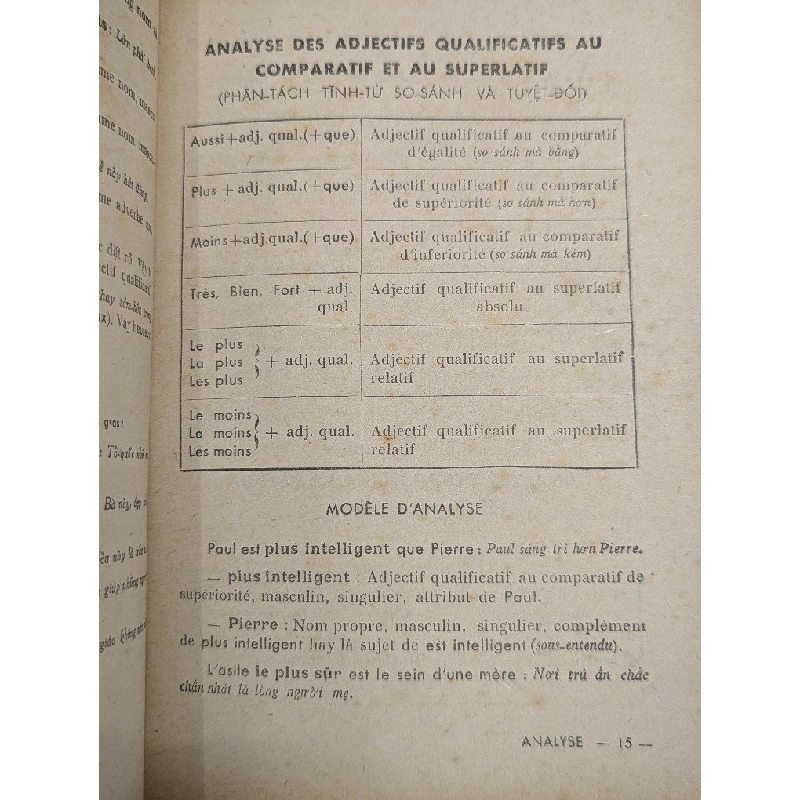 ANALYSE DES ADJECTIFS QUALIFICATIFS AU
COMPARATIF ET AU SUPERLATIF
(PHÂN-TÁCH TĨNH-TỪ SO-SÁNH VÀ TUYỆT-ĐỐI)
Aussi+adj. qual.(+que) Adjectif qualificatif au comparatif
d'égalité (so sánh mà bằng)
Plus + adj. qual.(+que) Adjectif qualificatif au comparatif
de supériorité (so sánh mà hơn)
Moins+adj.qual.(+que) Adjectif qualificatif au comparatif
d'inferiorité (so sánh mà kém)
Très, Bien, Fort + adj. Adjectif qualificatif au superlatif
qual absolu
Le plus
La plus } + adj. qual. Adjectif qualificatif au superlatif
Les plus relatif
Le moins
La moins } + adj. qual. Adjectif qualificatif au superlatif
Les moins relatif
MODÈLE D'ANALYSE
Paul est plus intelligent que Pierre : Paul sáng trí hơn Pierre.
— plus intelligent : Adjectif qualificatif au comparatif de
supériorité, masculin, singulier, attribut de Paul.
— Pierre : Nom propre, masculin, singulier, complément
de plus intelligent hay là sujet de est intelligent (sous-entendu).
L'asile le plus sûr est le sein d'une mère : Nơi trú ẩn chắc
chắn nhất là lòng người mẹ.
ANALYSE — 15 —